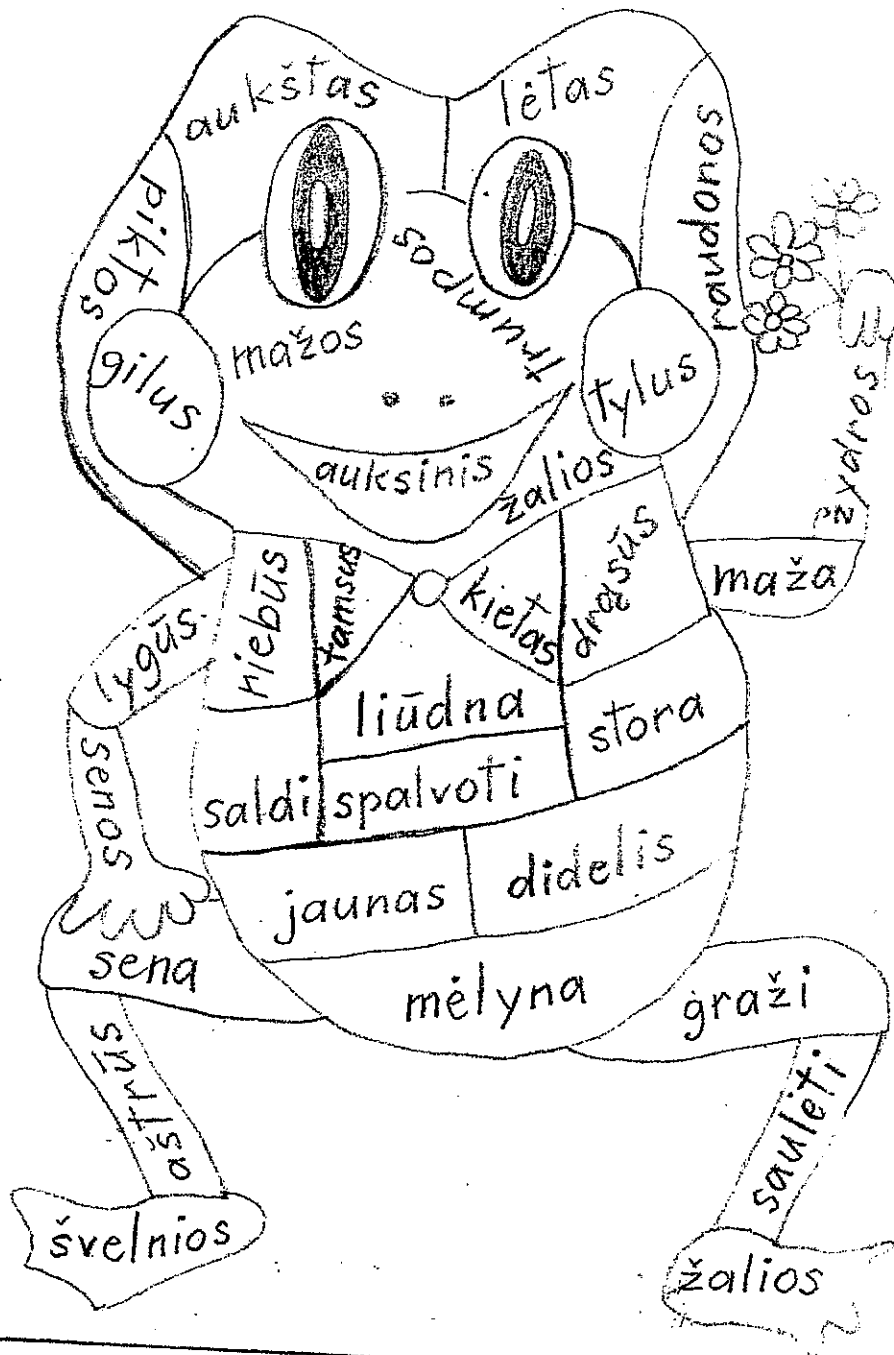 aukštas
lėtas
piktos
raudonos
trumpos
mažos
gilus
tylus
auksinis
žalios
žydros
maža
lygūs
riebūs
tamsus
kietas
drąsūs
liūdna
stora
senos
saldi
spalvoti
jaunas
didelis
sena
mėlyna
graži
aštrūs
saulėti
švelnios
žalios